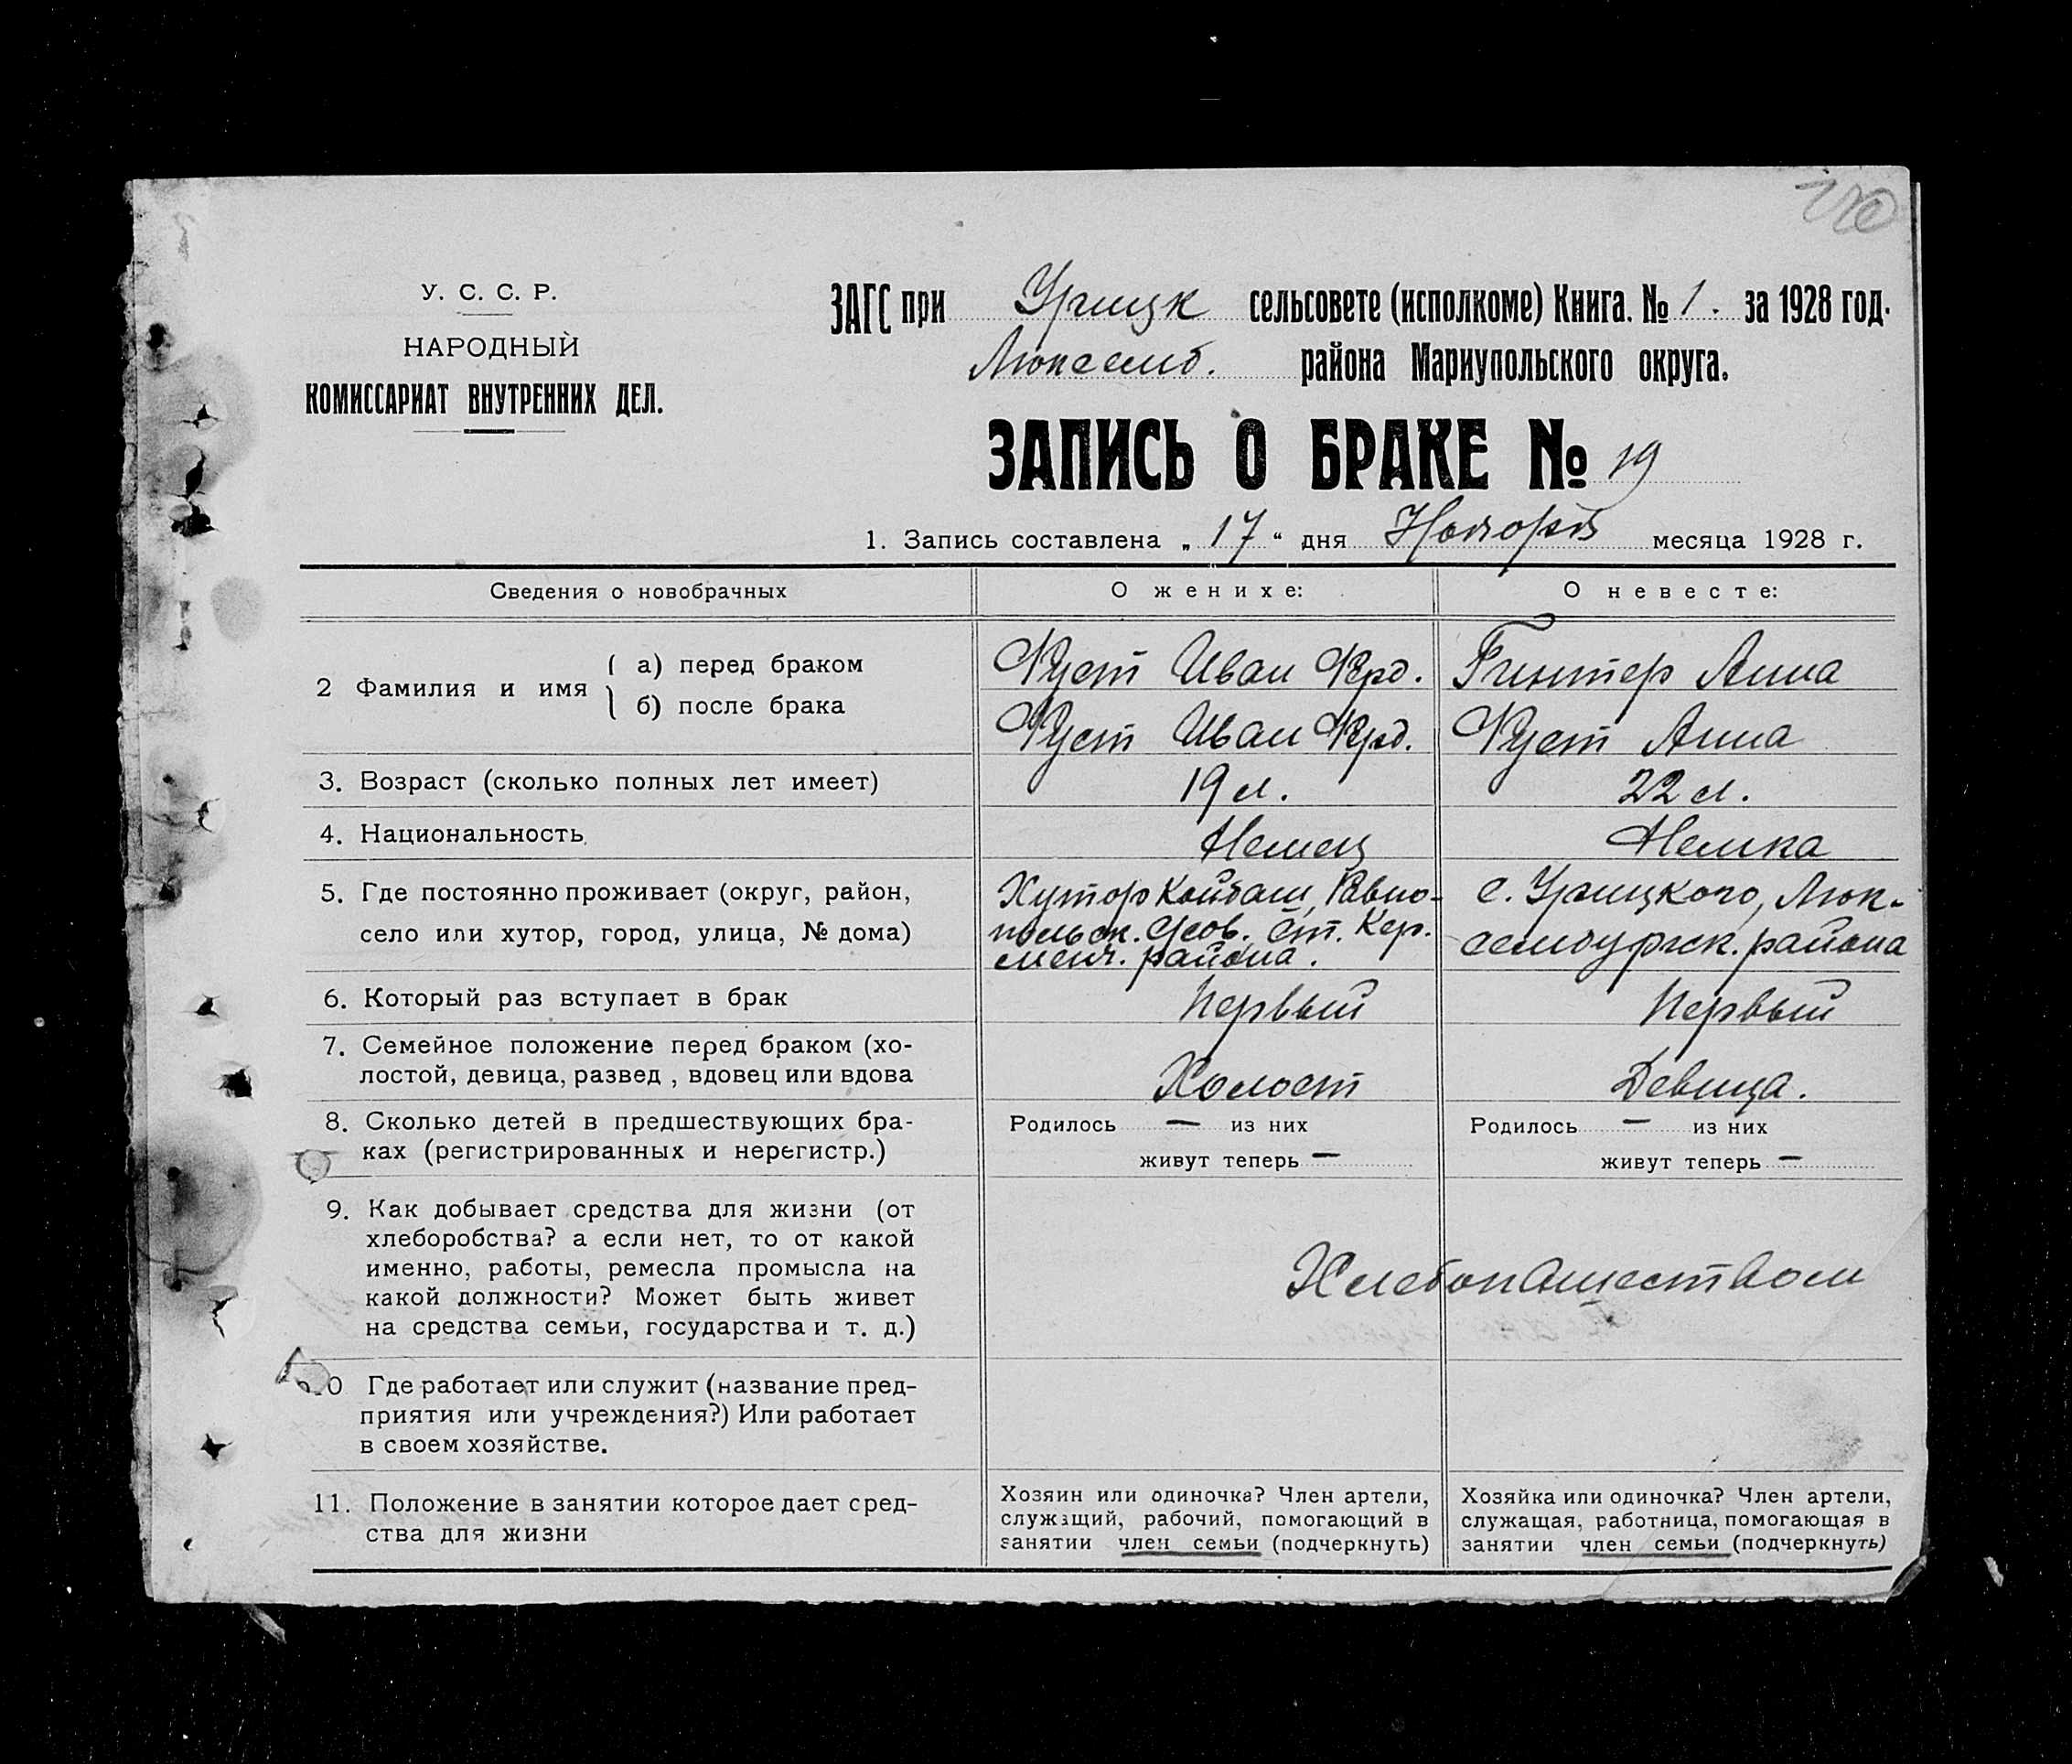 У. С. С. Р.
НАРОДНЫЙ
КОМИССАРИАТ ВНУТРЕННИХ ДЕЛ.
ЗАГС при Урицк сельсовете (исполкоме) Книга. № 1. за 1928 год.
Люксемб. района Мариупольского округа.
ЗАПИСЬ О БРАКЕ № 19
1. Запись составлена „17“ дня Ноября месяца 1928 г.
Сведения о новобрачных О женихе: О невесте:
2 Фамилия и имя
а) перед браком Фуст Иван Фрд. Гинтер Анна
б) после брака Фуст Иван Фрд. Фуст Анна
3. Возраст (сколько полных лет имеет) 19 л. 22 л.
4. Национальность Немец Немка
5. Где постоянно проживает (округ, район,
село или хутор, город, улица, № дома)
Хутор Койбаш, Равно-
польск. Ст. Кер.
менч. района.
с. Урицкого, Люк-
сембургск. района
6. Который раз вступает в брак Первый Первый
7. Семейное положение перед браком (хо-
лостой, девица, развед , вдовец или вдова Холост Девица.
8. Сколько детей в предшествующих бра-
ках (регистрированных и нерегистр.)
Родилось — из них
живут теперь —
Родилось — из них
живут теперь —
9. Как добывает средства для жизни (от
хлеборобства? а если нет, то от какой
именно, работы, ремесла промысла на
какой должности? Может быть живет
на средства семьи, государства и т. д.)
Хлебопашеством
10 Где работает или служит (название пред-
приятия или учреждения?) Или работает
в своем хозяйстве.
11. Положение в занятии которое дает сред-
ства для жизни
Хозяин или одиночка? Член артели,
служащий, рабочий, помогающий в
занятии член семьи (подчеркнуть)
Хозяйка или одиночка? Член артели,
служащая, работница, помогающая в
занятии член семьи (подчеркнуть)